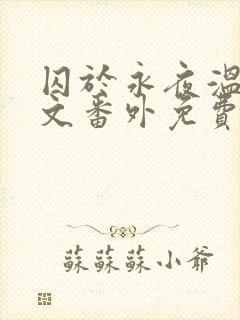 囚於永夜溫
文番外免費
蘇蘇蘇小爺